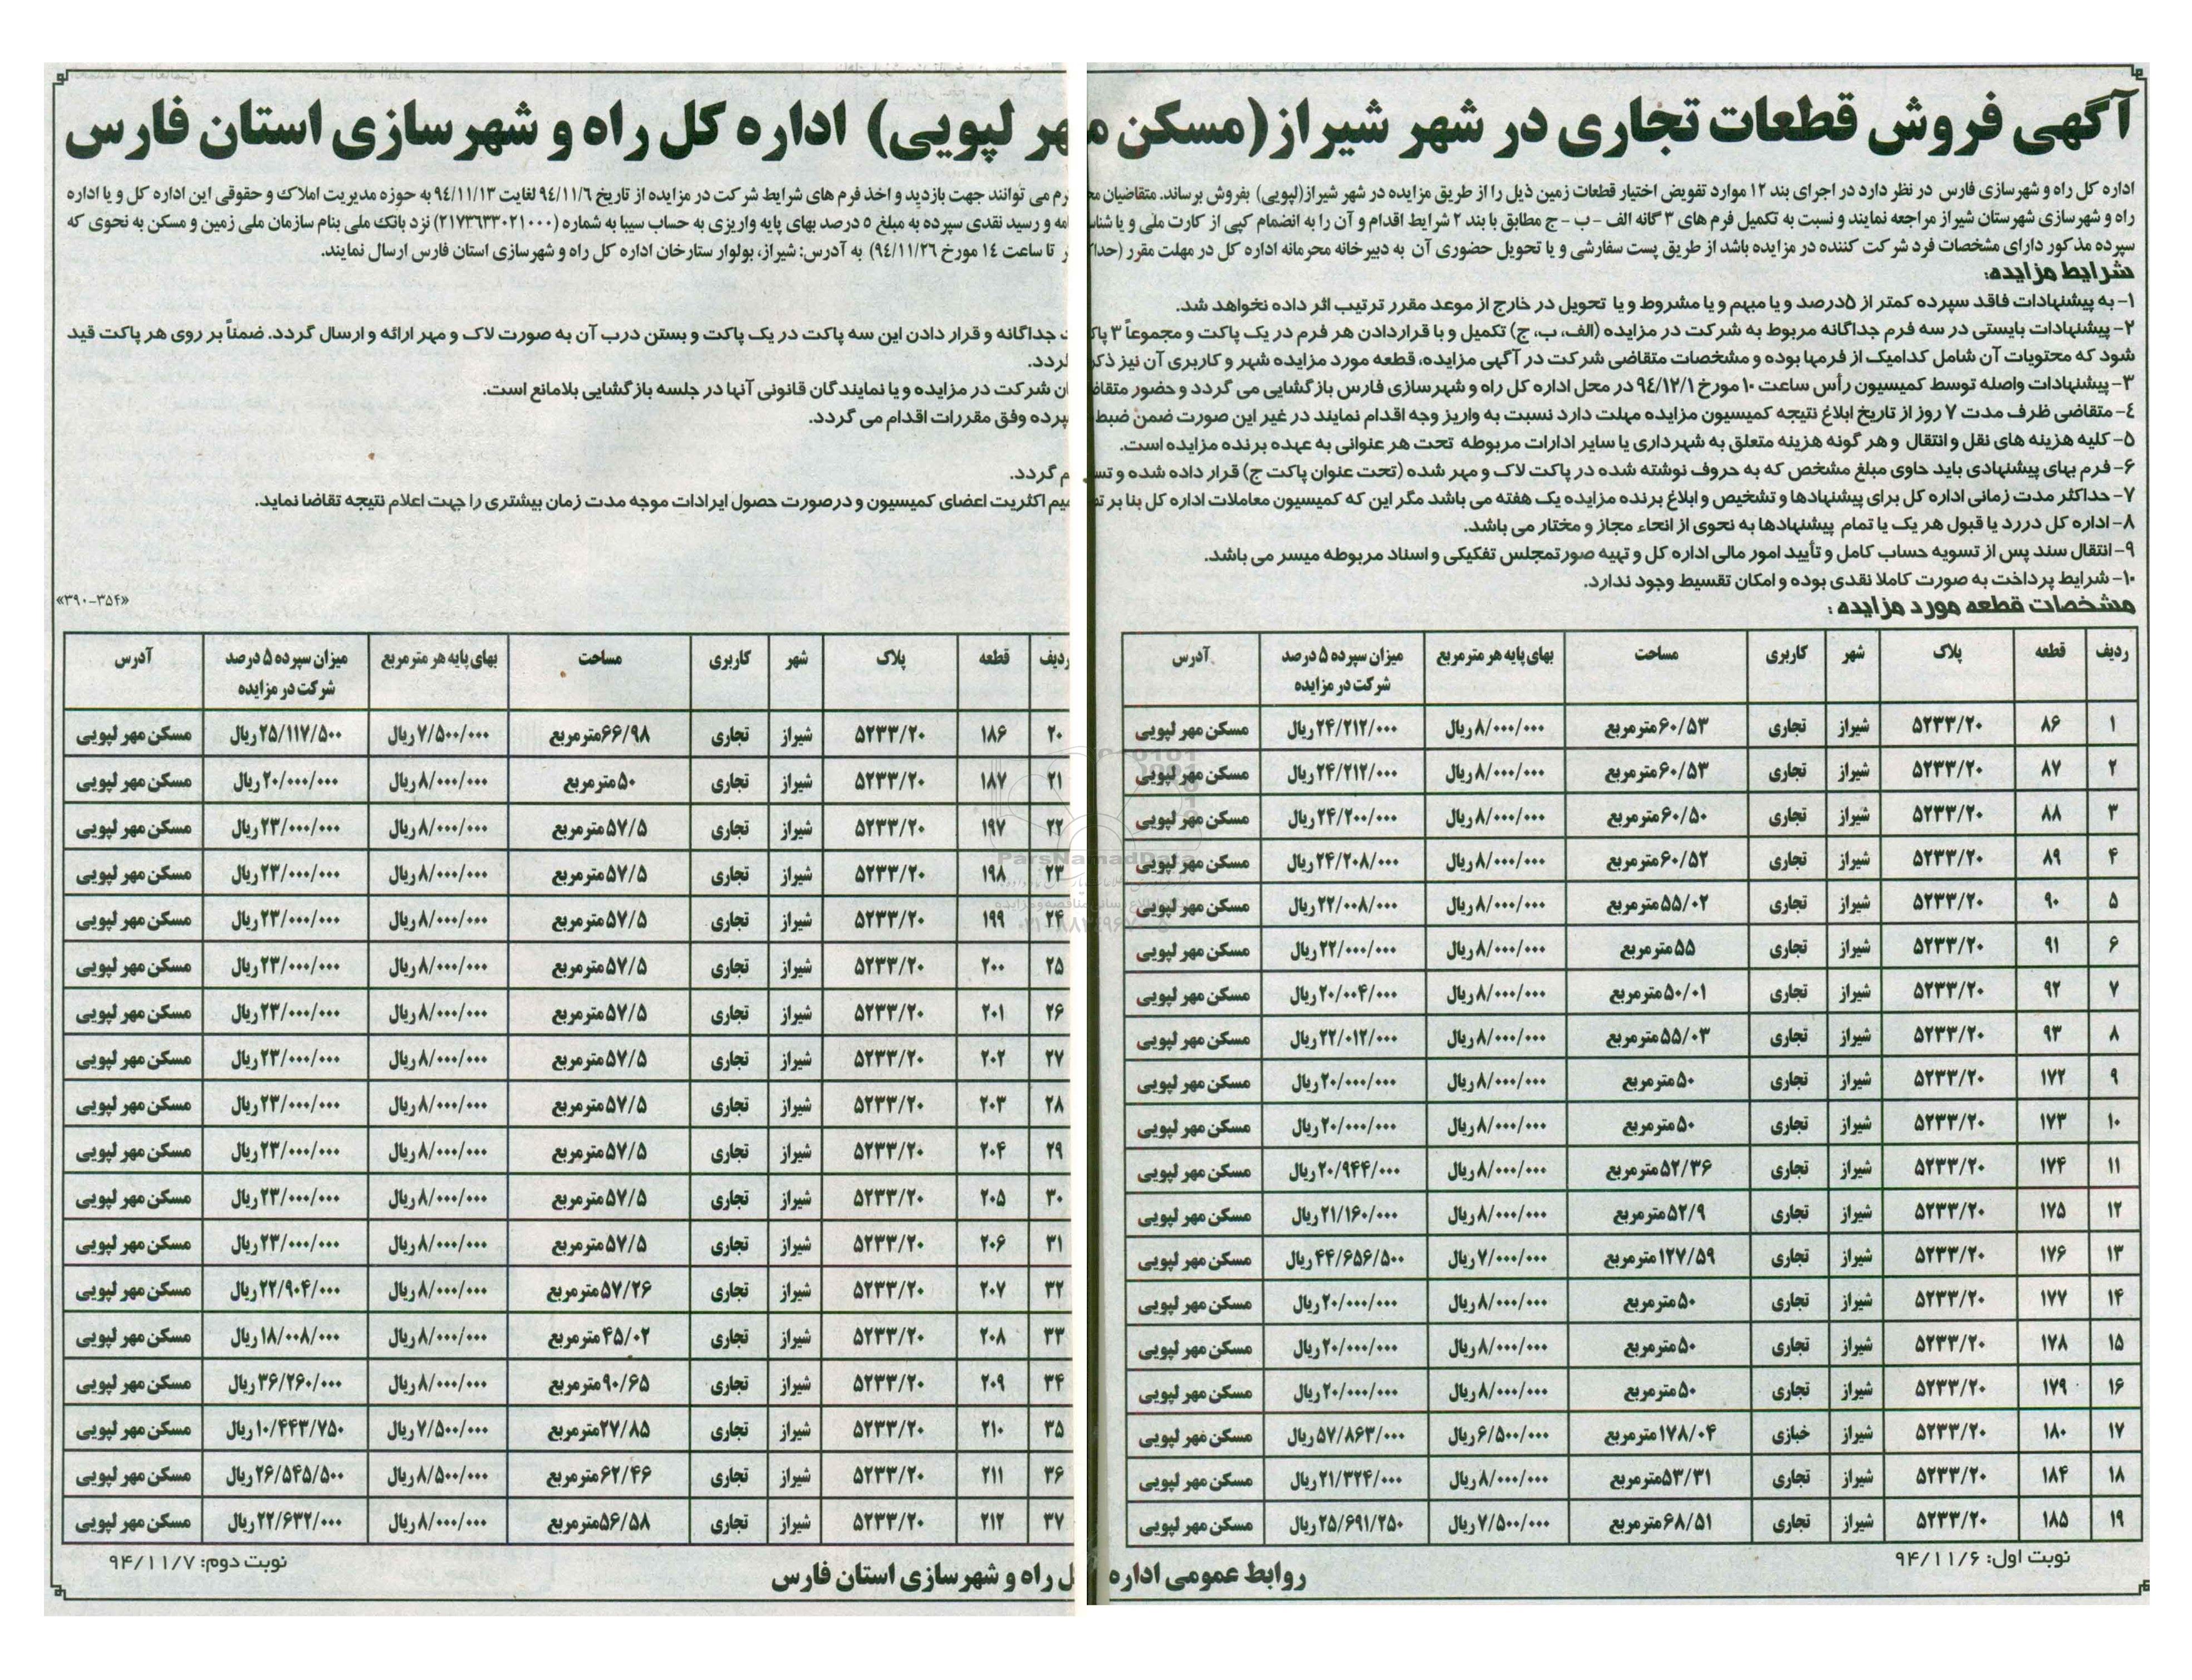 آگهی فروش قطعات تجاری در شهر شیراز(مسکن مهر لپویی) اداره کل راه و شهرسازی استان فارس
اداره کل راه و شهرسازی فارس در نظر دارد در اجرای بند ۱۲ موارد تفویض اختیار قطعات زمین ذیل را از طریق مزایده در شهر شیراز(لپویی) بفروش برساند. متقاضیان می توانند جهت بازدید و اخذ فرم های شرایط شرکت در مزایده از تاریخ ۹٤/۱۱/٦ لغایت ۹٤/۱۱/۱۳ به حوزه مدیریت املاک و حقوقی این اداره کل و یا اداره
راه و شهرسازی شهرستان شیراز مراجعه نمایند و نسبت به تکمیل فرم های ۳ گانه الف - ب - ج مطابق با بند ۲ شرایط اقدام و آن را به انضمام کپی از کارت ملی و یا شناسنامه و رسید نقدی سپرده به مبلغ ۵ درصد بهای پایه واریزی به حساب سیبا به شماره (۲۱۷۳٦۳۳۰۲۱۰۰۰) نزد بانک ملی بنام سازمان ملی زمین و مسکن به نحوی که
سپرده مذکور دارای مشخصات فرد شرکت کننده در مزایده باشد از طریق پست سفارشی و یا تحویل حضوری آن به دبیرخانه محرمانه اداره کل در مهلت مقرر (حداکثر تا ساعت ۱٤ مورخ ۹٤/۱۱/۲٦) به آدرس: شیراز، بولوار ستارخان اداره کل راه و شهرسازی استان فارس ارسال نمایند.
شرایط مزایده:
۱- به پیشنهادات فاقد سپرده کمتر از ۵درصد و یا مبهم و یا مشروط و یا تحویل در خارج از موعد مقرر ترتیب اثر داده نخواهد شد.
۲- پیشنهادات بایستی در سه فرم جداگانه مربوط به شرکت در مزایده (الف، ب، ج) تکمیل و با قراردادن هر فرم در یک پاکت و مجموعاً ۳ پاکت جداگانه و قرار دادن این سه پاکت در یک پاکت و بستن درب آن به صورت لاک و مهر ارائه و ارسال گردد. ضمناً بر روی هر پاکت قید
شود که محتویات آن شامل کدامیک از فرمها بوده و مشخصات متقاضی شرکت در آگهی مزایده، قطعه مورد مزایده شهر و کاربری آن نیز ذکر گردد.
۳- پیشنهادات واصله توسط کمیسیون رأس ساعت ۱۰ مورخ ۹٤/۱۲/۱ در محل اداره کل راه و شهرسازی فارس بازگشایی می گردد و حضور متقاضیان شرکت در مزایده و یا نمایندگان قانونی آنها در جلسه بازگشایی بلامانع است.
٤- متقاضی ظرف مدت ۷ روز از تاریخ ابلاغ نتیجه کمیسیون مزایده مهلت دارد نسبت به واریز وجه اقدام نمایند در غیر این صورت ضمن ضبط سپرده وفق مقررات اقدام می گردد.
۵- کلیه هزینه های نقل و انتقال و هر گونه هزینه متعلق به شهرداری یا سایر ادارات مربوطه تحت هر عنوانی به عهده برنده مزایده است.
۶- فرم بهای پیشنهادی باید حاوی مبلغ مشخص که به حروف نوشته شده در پاکت لاک و مهر شده (تحت عنوان پاکت ج) قرار داده شده و تسلیم گردد.
۷- حداکثر مدت زمانی اداره کل برای پیشنهادها و تشخیص و ابلاغ برنده مزایده یک هفته می باشد مگر این که کمیسیون معاملات اداره کل بنا بر تصمیم اکثریت اعضای کمیسیون و درصورت حصول ایرادات موجه مدت زمان بیشتری را جهت اعلام نتیجه تقاضا نماید.
۸- اداره کل دررد یا قبول هر یک یا تمام پیشنهادها به نحوی از انحاء مجاز و مختار می باشد.
۹- انتقال سند پس از تسویه حساب کامل و تأیید امور مالی اداره کل و تهیه صورتمجلس تفکیکی و اسناد مربوطه میسر می باشد.
۱۰- شرایط پرداخت به صورت کاملا نقدی بوده و امکان تقسیط وجود ندارد.
«۳۹۰-۳۵۴»
مشخصات قطعه مورد مزایده :
ردیف قطعه پلاک شهر کاربری مساحت بهای پایه هر مترمربع میزان سپرده ۵ درصد شرکت در مزایده آدرس
۱ ۸۶ ۵۲۳۳/۲۰ شیراز تجاری ۶۰/۵۳مترمربع ۸/۰۰۰/۰۰۰ریال ۲۴/۲۱۲/۰۰۰ریال مسکن مهر لپویی
۲ ۸۷ ۵۲۳۳/۲۰ شیراز تجاری ۶۰/۵۳مترمربع ۸/۰۰۰/۰۰۰ریال ۲۴/۲۱۲/۰۰۰ریال مسکن مهر لپویی
۳ ۸۸ ۵۲۳۳/۲۰ شیراز تجاری ۶۰/۵۰مترمربع ۸/۰۰۰/۰۰۰ریال ۲۴/۲۰۰/۰۰۰ریال مسکن مهر لپویی
۴ ۸۹ ۵۲۳۳/۲۰ شیراز تجاری ۶۰/۵۲مترمربع ۸/۰۰۰/۰۰۰ریال ۲۴/۲۰۸/۰۰۰ریال مسکن مهر لپویی
۵ ۹۰ ۵۲۳۳/۲۰ شیراز تجاری ۵۵/۰۲مترمربع ۸/۰۰۰/۰۰۰ریال ۲۲/۰۰۸/۰۰۰ریال مسکن مهر لپویی
۶ ۹۱ ۵۲۳۳/۲۰ شیراز تجاری ۵۵مترمربع ۸/۰۰۰/۰۰۰ریال ۲۲/۰۰۰/۰۰۰ریال مسکن مهر لپویی
۷ ۹۲ ۵۲۳۳/۲۰ شیراز تجاری ۵۰/۰۱مترمربع ۸/۰۰۰/۰۰۰ریال ۲۰/۰۰۴/۰۰۰ریال مسکن مهر لپویی
۸ ۹۳ ۵۲۳۳/۲۰ شیراز تجاری ۵۵/۰۳مترمربع ۸/۰۰۰/۰۰۰ریال ۲۲/۰۱۲/۰۰۰ریال مسکن مهر لپویی
۹ ۱۷۲ ۵۲۳۳/۲۰ شیراز تجاری ۵۰مترمربع ۸/۰۰۰/۰۰۰ریال ۲۰/۰۰۰/۰۰۰ریال مسکن مهر لپویی
۱۰ ۱۷۳ ۵۲۳۳/۲۰ شیراز تجاری ۵۰مترمربع ۸/۰۰۰/۰۰۰ریال ۲۰/۰۰۰/۰۰۰ریال مسکن مهر لپویی
۱۱ ۱۷۴ ۵۲۳۳/۲۰ شیراز تجاری ۵۲/۳۶مترمربع ۸/۰۰۰/۰۰۰ریال ۲۰/۹۴۴/۰۰۰ریال مسکن مهر لپویی
۱۲ ۱۷۵ ۵۲۳۳/۲۰ شیراز تجاری ۵۲/۹مترمربع ۸/۰۰۰/۰۰۰ریال ۲۱/۱۶۰/۰۰۰ریال مسکن مهر لپویی
۱۳ ۱۷۶ ۵۲۳۳/۲۰ شیراز تجاری ۱۲۷/۵۹مترمربع ۷/۰۰۰/۰۰۰ریال ۴۴/۶۵۶/۵۰۰ریال مسکن مهر لپویی
۱۴ ۱۷۷ ۵۲۳۳/۲۰ شیراز تجاری ۵۰مترمربع ۸/۰۰۰/۰۰۰ریال ۲۰/۰۰۰/۰۰۰ریال مسکن مهر لپویی
۱۵ ۱۷۸ ۵۲۳۳/۲۰ شیراز تجاری ۵۰مترمربع ۸/۰۰۰/۰۰۰ریال ۲۰/۰۰۰/۰۰۰ریال مسکن مهر لپویی
۱۶ ۱۷۹ ۵۲۳۳/۲۰ شیراز تجاری ۵۰مترمربع ۸/۰۰۰/۰۰۰ریال ۲۰/۰۰۰/۰۰۰ریال مسکن مهر لپویی
۱۷ ۱۸۰ ۵۲۳۳/۲۰ شیراز خبازی ۱۷۸/۰۴مترمربع ۶/۵۰۰/۰۰۰ریال ۵۷/۸۶۳/۰۰۰ریال مسکن مهر لپویی
۱۸ ۱۸۴ ۵۲۳۳/۲۰ شیراز تجاری ۵۳/۳۱مترمربع ۸/۰۰۰/۰۰۰ریال ۲۱/۳۲۴/۰۰۰ریال مسکن مهر لپویی
۱۹ ۱۸۵ ۵۲۳۳/۲۰ شیراز تجاری ۶۸/۵۱مترمربع ۷/۵۰۰/۰۰۰ریال ۲۵/۶۹۱/۲۵۰ریال مسکن مهر لپویی
ردیف قطعه پلاک شهر کاربری مساحت بهای پایه هر مترمربع میزان سپرده ۵ درصد شرکت در مزایده آدرس
۲۰ ۱۸۶ ۵۲۳۳/۲۰ شیراز تجاری ۶۶/۹۸مترمربع ۷/۵۰۰/۰۰۰ریال ۲۵/۱۱۷/۵۰۰ریال مسکن مهر لپویی
۲۱ ۱۸۷ ۵۲۳۳/۲۰ شیراز تجاری ۵۰مترمربع ۸/۰۰۰/۰۰۰ریال ۲۰/۰۰۰/۰۰۰ریال مسکن مهر لپویی
۲۲ ۱۹۷ ۵۲۳۳/۲۰ شیراز تجاری ۵۷/۵مترمربع ۸/۰۰۰/۰۰۰ریال ۲۳/۰۰۰/۰۰۰ریال مسکن مهر لپویی
۲۳ ۱۹۸ ۵۲۳۳/۲۰ شیراز تجاری ۵۷/۵مترمربع ۸/۰۰۰/۰۰۰ریال ۲۳/۰۰۰/۰۰۰ریال مسکن مهر لپویی
۲۴ ۱۹۹ ۵۲۳۳/۲۰ شیراز تجاری ۵۷/۵مترمربع ۸/۰۰۰/۰۰۰ریال ۲۳/۰۰۰/۰۰۰ریال مسکن مهر لپویی
۲۵ ۲۰۰ ۵۲۳۳/۲۰ شیراز تجاری ۵۷/۵مترمربع ۸/۰۰۰/۰۰۰ریال ۲۳/۰۰۰/۰۰۰ریال مسکن مهر لپویی
۲۶ ۲۰۱ ۵۲۳۳/۲۰ شیراز تجاری ۵۷/۵مترمربع ۸/۰۰۰/۰۰۰ریال ۲۳/۰۰۰/۰۰۰ریال مسکن مهر لپویی
۲۷ ۲۰۲ ۵۲۳۳/۲۰ شیراز تجاری ۵۷/۵مترمربع ۸/۰۰۰/۰۰۰ریال ۲۳/۰۰۰/۰۰۰ریال مسکن مهر لپویی
۲۸ ۲۰۳ ۵۲۳۳/۲۰ شیراز تجاری ۵۷/۵مترمربع ۸/۰۰۰/۰۰۰ریال ۲۳/۰۰۰/۰۰۰ریال مسکن مهر لپویی
۲۹ ۲۰۴ ۵۲۳۳/۲۰ شیراز تجاری ۵۷/۵مترمربع ۸/۰۰۰/۰۰۰ریال ۲۳/۰۰۰/۰۰۰ریال مسکن مهر لپویی
۳۰ ۲۰۵ ۵۲۳۳/۲۰ شیراز تجاری ۵۷/۵مترمربع ۸/۰۰۰/۰۰۰ریال ۲۳/۰۰۰/۰۰۰ریال مسکن مهر لپویی
۳۱ ۲۰۶ ۵۲۳۳/۲۰ شیراز تجاری ۵۷/۵مترمربع ۸/۰۰۰/۰۰۰ریال ۲۳/۰۰۰/۰۰۰ریال مسکن مهر لپویی
۳۲ ۲۰۷ ۵۲۳۳/۲۰ شیراز تجاری ۵۷/۲۶مترمربع ۸/۰۰۰/۰۰۰ریال ۲۲/۹۰۴/۰۰۰ریال مسکن مهر لپویی
۳۳ ۲۰۸ ۵۲۳۳/۲۰ شیراز تجاری ۴۵/۰۲مترمربع ۸/۰۰۰/۰۰۰ریال ۱۸/۰۰۸/۰۰۰ریال مسکن مهر لپویی
۳۴ ۲۰۹ ۵۲۳۳/۲۰ شیراز تجاری ۹۰/۶۵مترمربع ۸/۰۰۰/۰۰۰ریال ۳۶/۲۶۰/۰۰۰ریال مسکن مهر لپویی
۳۵ ۲۱۰ ۵۲۳۳/۲۰ شیراز تجاری ۲۷/۸۵مترمربع ۷/۵۰۰/۰۰۰ریال ۱۰/۴۴۳/۷۵۰ریال مسکن مهر لپویی
۳۶ ۲۱۱ ۵۲۳۳/۲۰ شیراز تجاری ۶۲/۴۶مترمربع ۸/۵۰۰/۰۰۰ریال ۲۶/۵۴۵/۵۰۰ریال مسکن مهر لپویی
۳۷ ۲۱۲ ۵۲۳۳/۲۰ شیراز تجاری ۵۶/۵۸مترمربع ۸/۰۰۰/۰۰۰ریال ۲۲/۶۳۲/۰۰۰ریال مسکن مهر لپویی
نوبت اول: ۹۴/۱۱/۶
نوبت دوم: ۹۴/۱۱/۷
روابط عمومی اداره کل راه و شهرسازی استان فارس
ParsNamadData